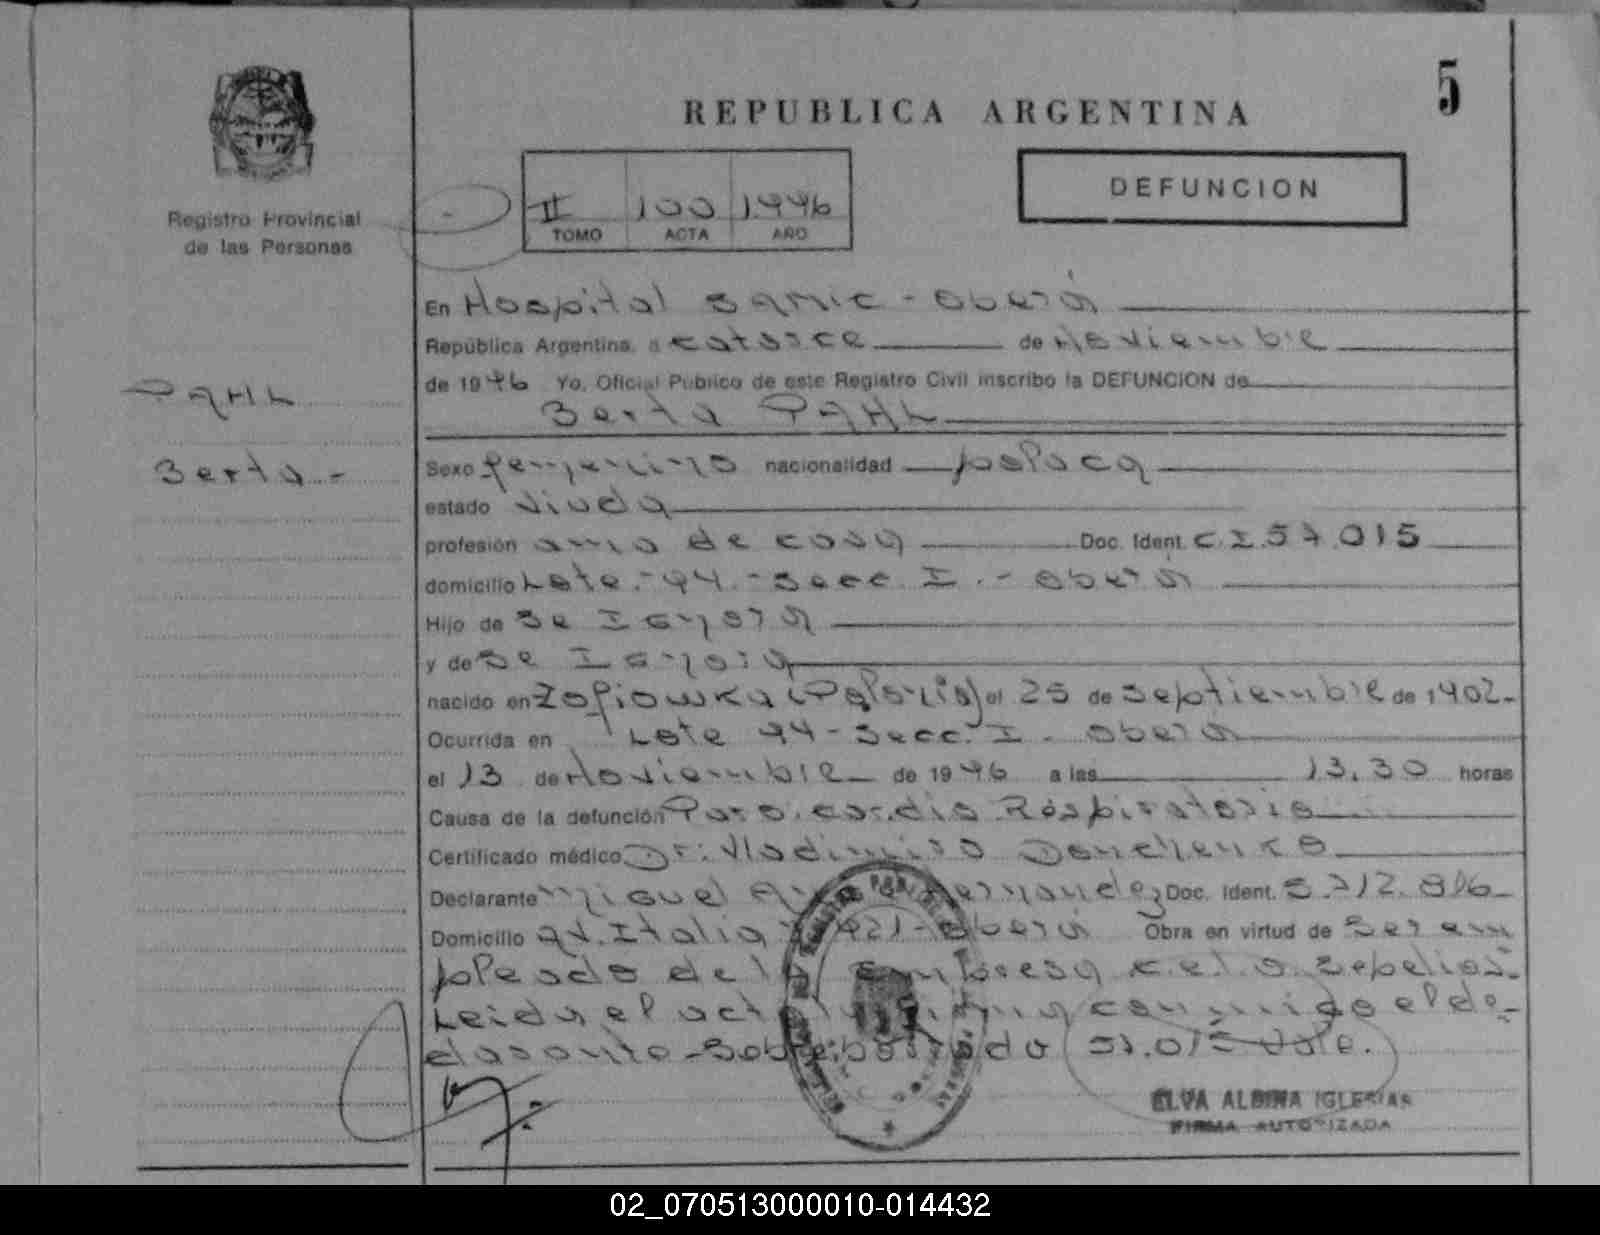 5
REPUBLICA ARGENTINA
DEFUNCION
II 100 1.996
TOMO ACTA AÑO
Registro Provincial
de las Personas
En Hospital Samic - Oberá
República Argentina, a catorce de Noviembre
de 1996 Yo, Oficial Público de este Registro Civil inscribo la DEFUNCION de
Berta PAHL
PAHL
Berta.-
Sexo femenino nacionalidad polaca
estado viuda
profesión ama de casa Doc. Ident. C.I.57.015
domicilio Lote.-94.-Secc. I.- Oberá
Hijo de Se Ignora
y de Se Ignora
nacido en Zofiowka (Polonia) el 25 de Septiembre de 1902-
Ocurrida en Lote 94-Secc. I - Oberá
el 13 de Noviembre de 1996 a las 13.30 horas
Causa de la defunción Paro cardio Respiratorio
Certificado médico Dr: Vladimiro Donchenko
Declarante Miguel Hernandez Doc. Ident.
Domicilio Av. Italia - Oberá Obra en virtud de Ser em
pleado de la Empresa c.e.l.o. Sepelios.-
Leida el acta firma conmigo el de-
clarante-Sobreborrado 57.015 Vale.
ELVA ALBINA IGLESIAS
FIRMA AUTORIZADA
02_070513000010-014432